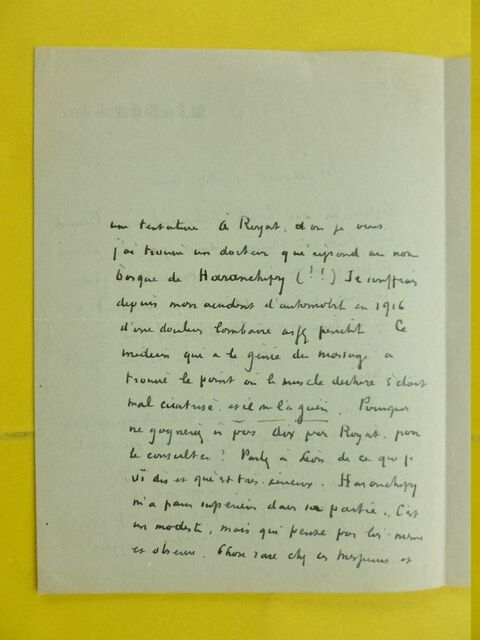 une tentative. À Royat, d'où je viens
j'ai trouvé un docteur qui répond au nom
basque de Haranchipy (!!) Je souffrais
depuis mon accident d'automobile en 1916
d'une douleur lombaire assez pénible. Ce
médecin qui a le génie du massage a
trouvé le point où le muscle déchiré s'était
mal cicatrisé, et il m'a guéri. Pourquoi
ne gagneriez vous pas Royat pour
le consulter? Parlez à Léon de ce que je
vs dis et qui est très sérieux. Haranchipy
m'a paru supérieur dans sa partie. C'est
un modeste, mais qui pense par lui-même
et observe. Chose rare chez ces messieurs et